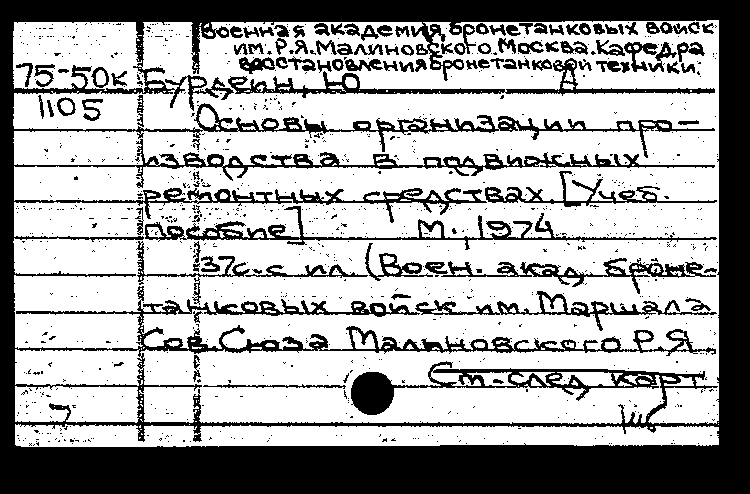 Военная академия бронетанковых войск
им. Р.Я. Малиновского. Москва. Кафедра
восстановления бронетанковой техники.
75-50к Бурдеин, Ю А
1105
Основы организации про-
изводства в подвижных
ремонтных средствах. [Учеб.
пособие] М., 1974
37с. с ил. (Воен. акад. броне-
танковых войск им. Маршала
Сов. Союза Малиновского Р.Я.
См. след. карт
7